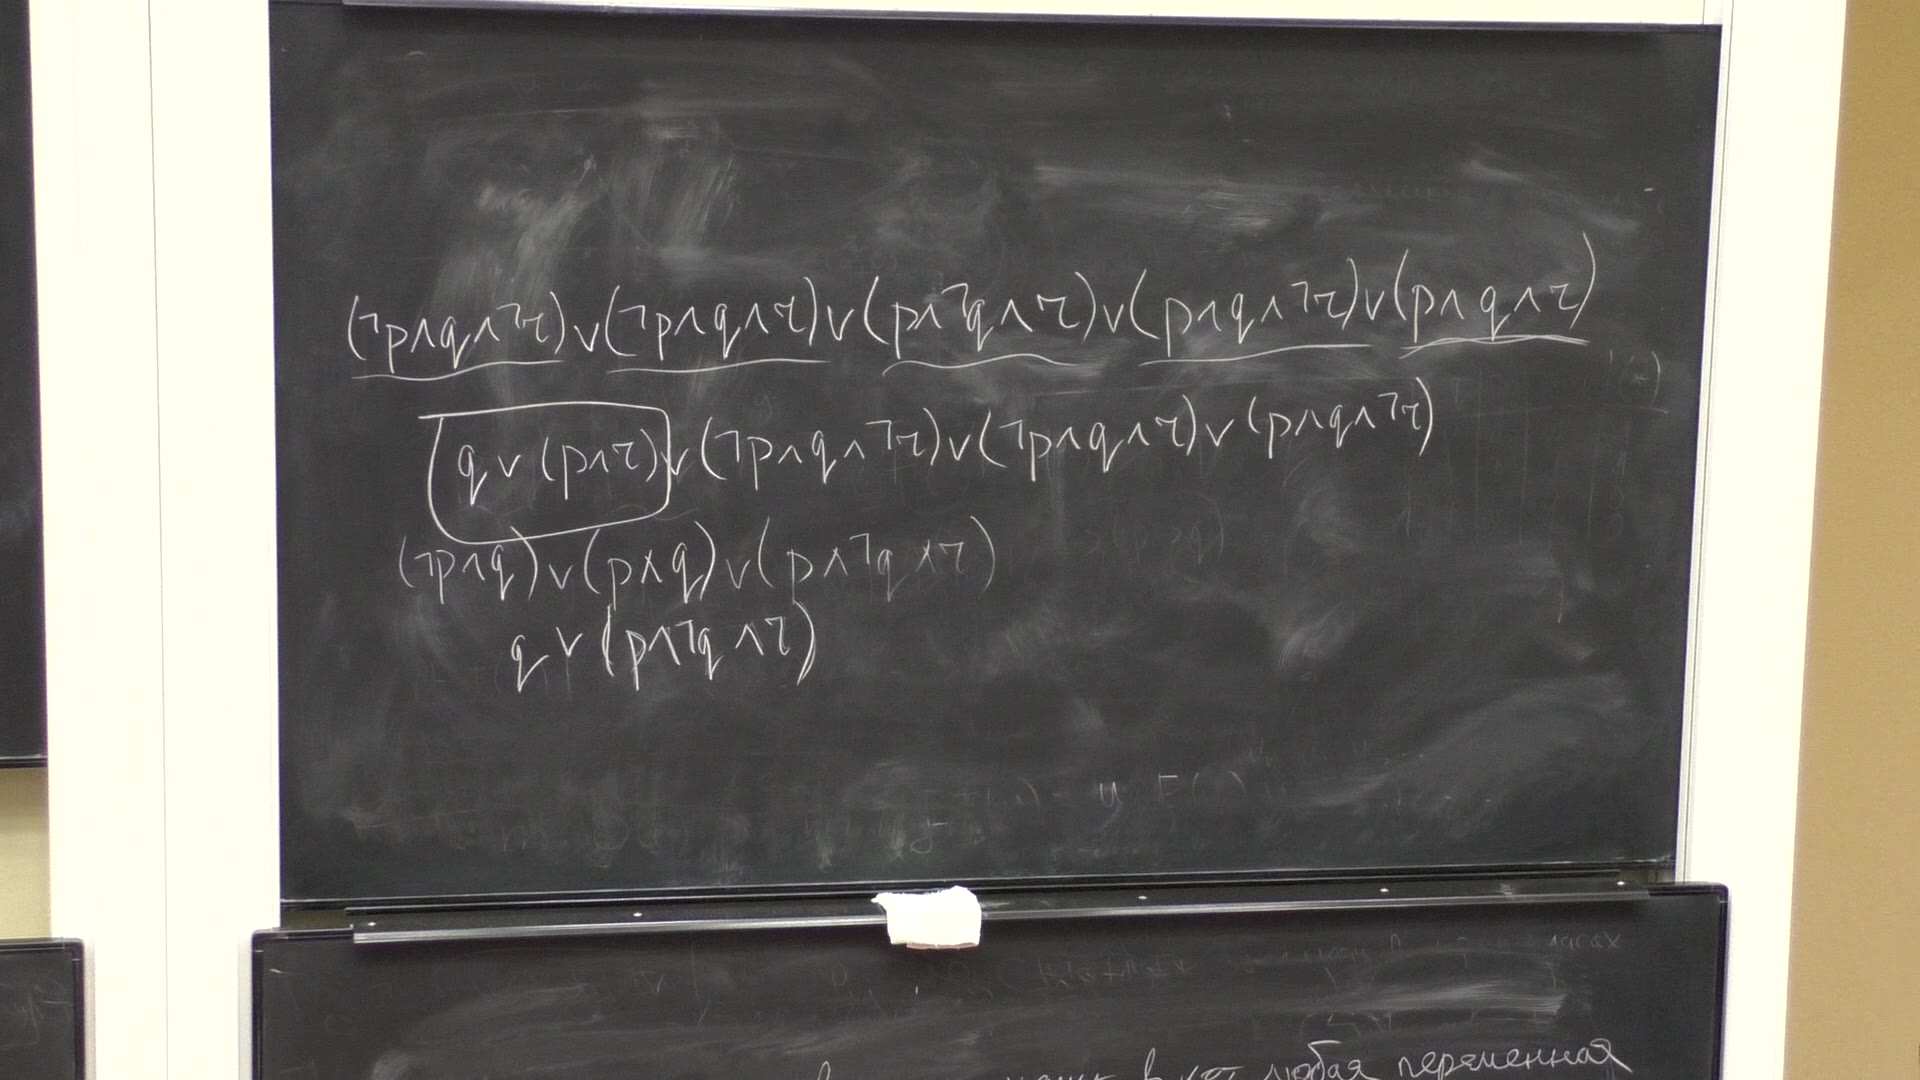 (¬p∧q∧¬r)∨(¬p∧q∧r)∨(p∧¬q∧r)∨(p∧q∧¬r)∨(p∧q∧r)
(*)
q∨(p∧r)∨(¬p∧q∧¬r)∨(¬p∧q∧r)∨(p∧q∧¬r)
(¬p∧q)∨(p∧q)∨(p∧¬q∧r)
q∨(p∧¬q∧r)
любая переменная